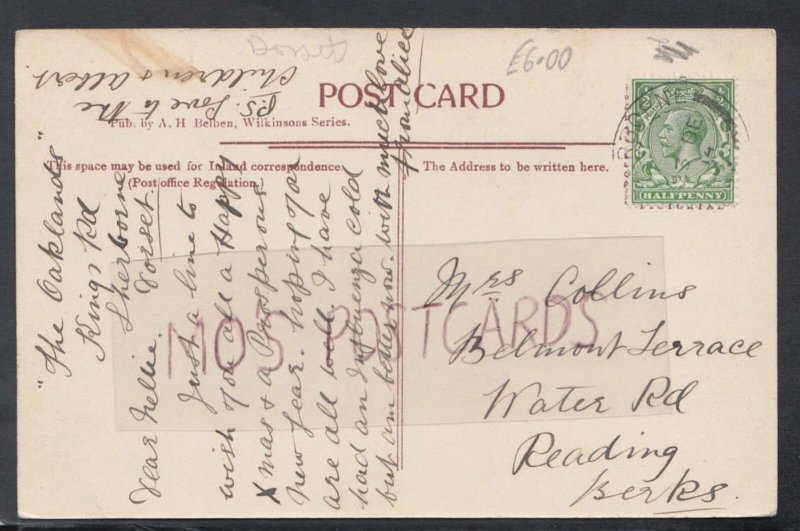 Dorset
£6.00
POST CARD
Pub. by A. H Belben, Wilkinsons Series.
This space may be used for Inland correspondence
(Post office Regulation.)
The Address to be written here.
HALFPENNY
"The Oaklands"
Kings Rd
Sherborne
Dorset.
Dear Nellie.
Just a line to
wish you all a Happy
Xmas & a Prosperous
New Year. hoping you
are all well. I have
had an Influenza cold
but am better now. with much love
from Alice
PS Love to the
Children & Albert
Mrs Collins
Belmont Terrace
Water Rd
Reading
Berks.
MO POSTCARDS